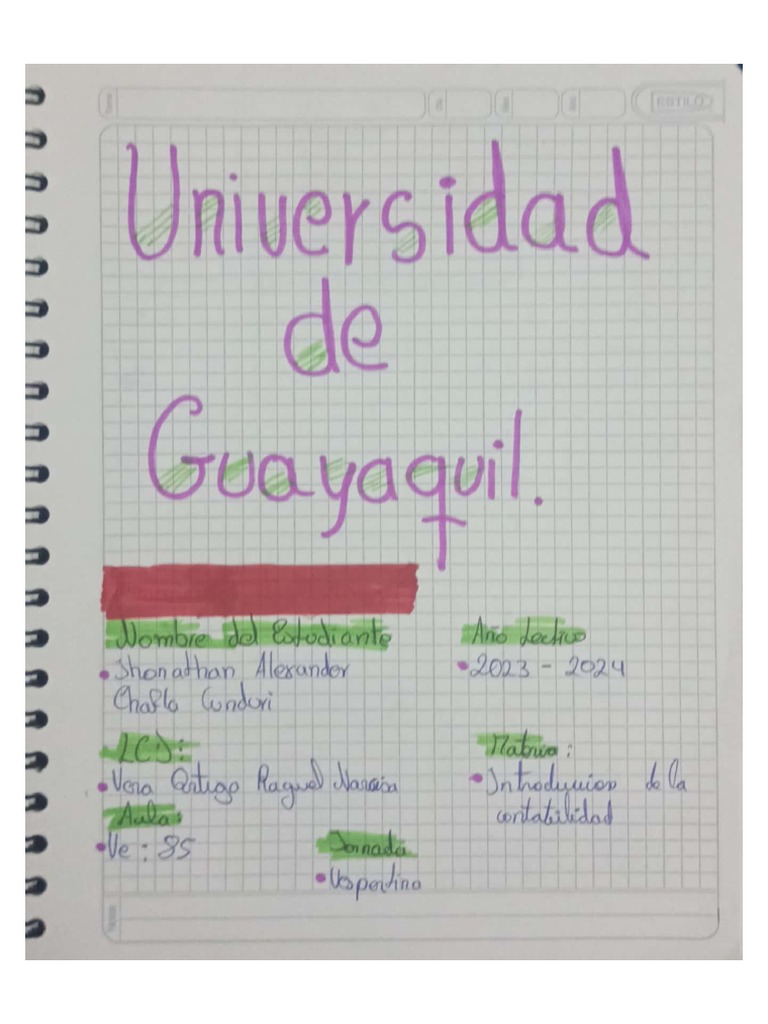 ESTILO
Universidad
de
Guayaquil.
Nombre del Estudiante
Año Lectivo
• Jhonathan Alexander
• 2023 - 2024
Chafla Cunduri
LCD:
Materia:
• Vera Ortega Raquel Narcisa
• Introduccion de la
contabilidad
Aula:
• Ve: 85
Jornada
• Vespertina